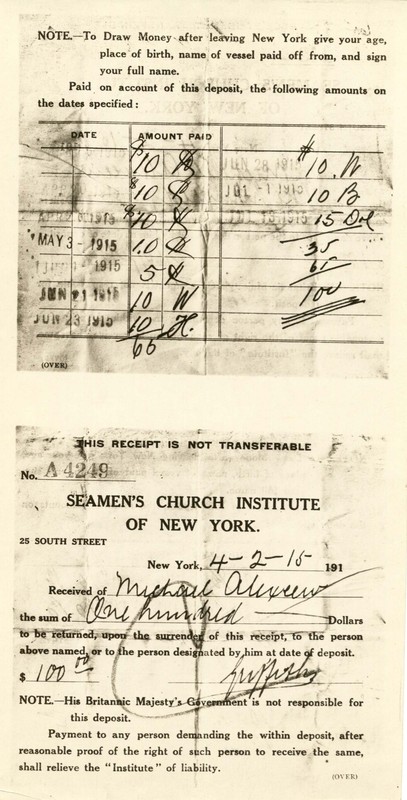 NOTE.—To Draw Money after leaving New York give your age,
place of birth, name of vessel paid off from, and sign
your full name.
Paid on account of this deposit, the following amounts on
the dates specified:
DATE AMOUNT PAID
$10 JUN 28 1915 $10. W
$10 JUL -1 1915 10 B
$10 1915 15 Dol
MAY 3 - 1915 10 35
1915 5 65
JUN 21 1915 10 W 100
JUN 23 1915 10 H.
(OVER)
THIS RECEIPT IS NOT TRANSFERABLE
No. A 4249
SEAMEN'S CHURCH INSTITUTE
OF NEW YORK.
25 SOUTH STREET
New York, 4-2-15 191
Received of Michael
the sum of One hundred Dollars
to be returned, upon the surrender of this receipt, to the person
above named, or to the person designated by him at date of deposit.
$ 100 00 Griffith
NOTE.—His Britannic Majesty's Government is not responsible for
this deposit.
Payment to any person demanding the within deposit, after
reasonable proof of the right of such person to receive the same,
shall relieve the "Institute" of liability.
(OVER)